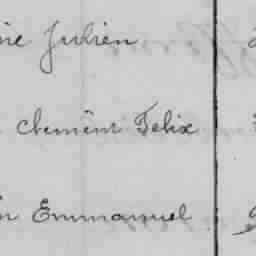 Julien
Clement Felix
Emmanuel